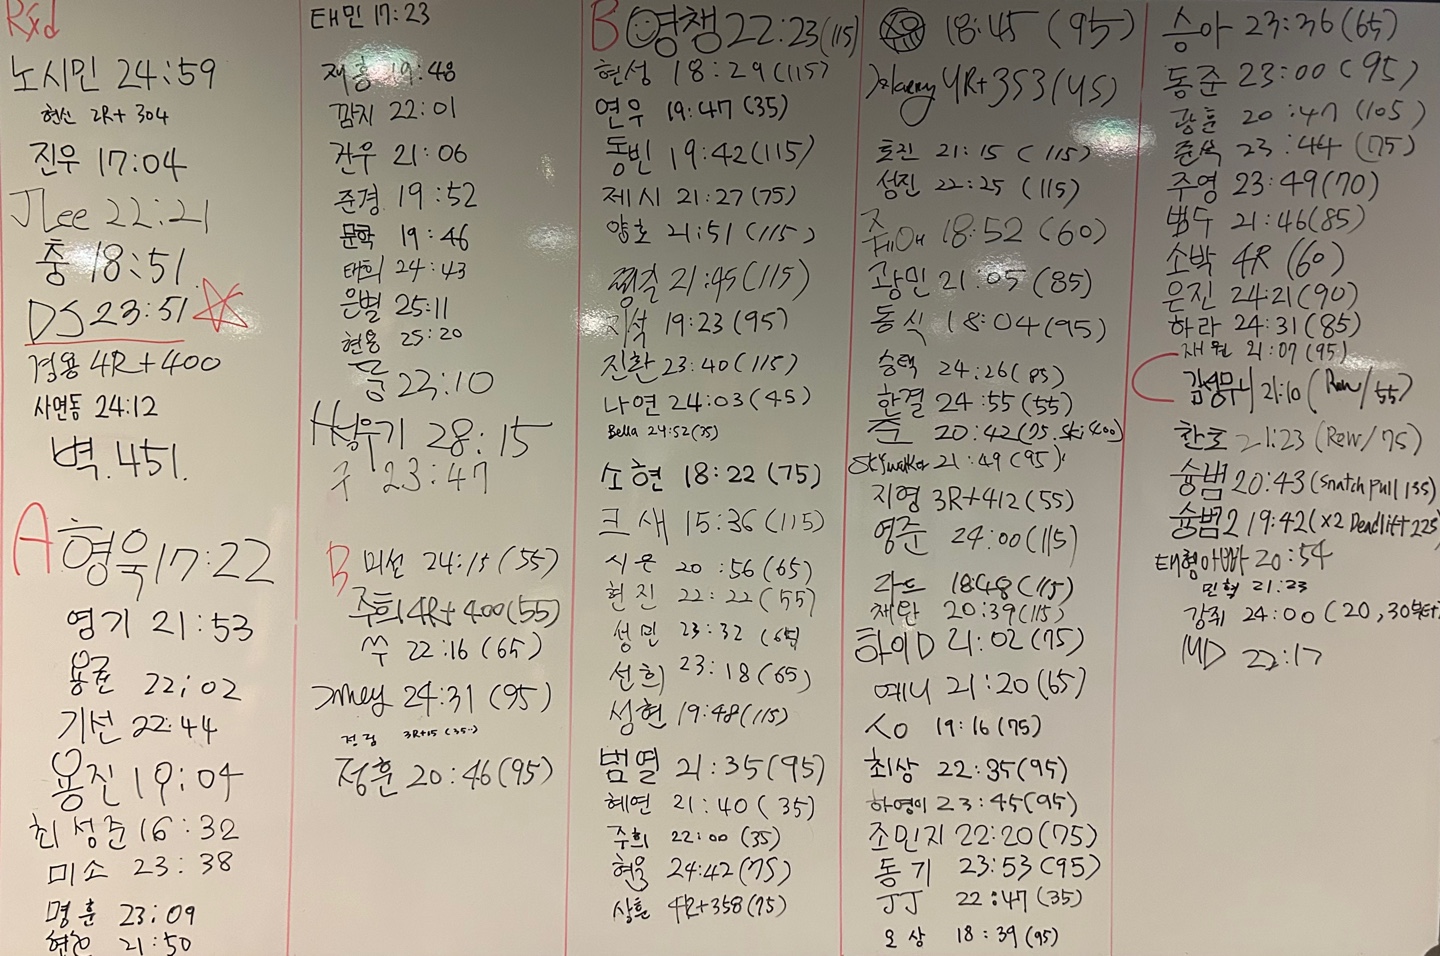 Rxd
노시민 24:59
현신 2R+ 304
진우 17:04
JLee 22:21
충 18:51
DS 23:51
경용 4R+400
사연동 24:12
벽. 451.
A 형욱 17:22
영기 21:53
용준 22:02
기선 22:44
용진 19:04
최성준 16:32
미소 23:38
명훈 23:09
21:50
태민 17:23
재홍 19:48
깜지 22:01
건우 21:06
준경 19:52
문학 19:46
태희 24:43
은별 25:11
현용 25:20
22:10
28:15
구 23:47
B 미선 24:15 (55)
주희 4R+400(55)
쑤 22:16 (65)
24:31 (95)
3R+15 (35)
정훈 20:46(95)
B 영챙 22:23(115)
현성 18:29(115)
연우 19:47(35)
동빈 19:42(115)
제시 21:27(75)
양호 21:51(115)
21:45(115)
지석 19:23(95)
진환 23:40(115)
나연 24:03(45)
Bella 24:52(35)
소현 18:22(75)
크새 15:36(115)
시온 20:56(65)
현진 22:22(55)
성민 23:32 (65)
선희 23:18(65)
성현 19:48(115)
범열 21:35(95)
혜연 21:40(35)
주희 22:00 (35)
현울 24:42(75)
상훈 4R+358(75)
18:45 (95)
4R+353(45)
효진 21:15 (115)
성진 22:25 (115)
18:52 (60)
광민 21:05(85)
동식 18:04(95)
승택 24:26(85)
한결 24:55(55)
쥭 20:42(75. ski 400)
21:49(95)
지영 3R+412(55)
영준 24:00(115)
라드 18:48(115)
재란 20:39(115)
하이D 21:02(75)
예니 21:20(65)
ㅅㅇ 19:16(75)
최상 22:35(95)
하영이 23:45(95)
조민지 22:20(75)
동기 23:53(95)
JJ 22:47(35)
오상 18:39(95)
승아 23:36(65)
동준 23:00(95)
광훈 20:47(105)
준석 23:44(75)
주영 23:49(70)
범수 21:46(85)
소박 4R (60)
은진 24:21(90)
하라 24:31(85)
재원 21:07(95)
21:10 (Row/55)
찬호 21:23 (Row/75)
슝범 20:43(snatch pull 135)
슝범2 19:42(x2 Deadlift 225)
태형아빠 20:54
민혁 21:23
강쥐 24:00(20,30부터)
MD 22:17